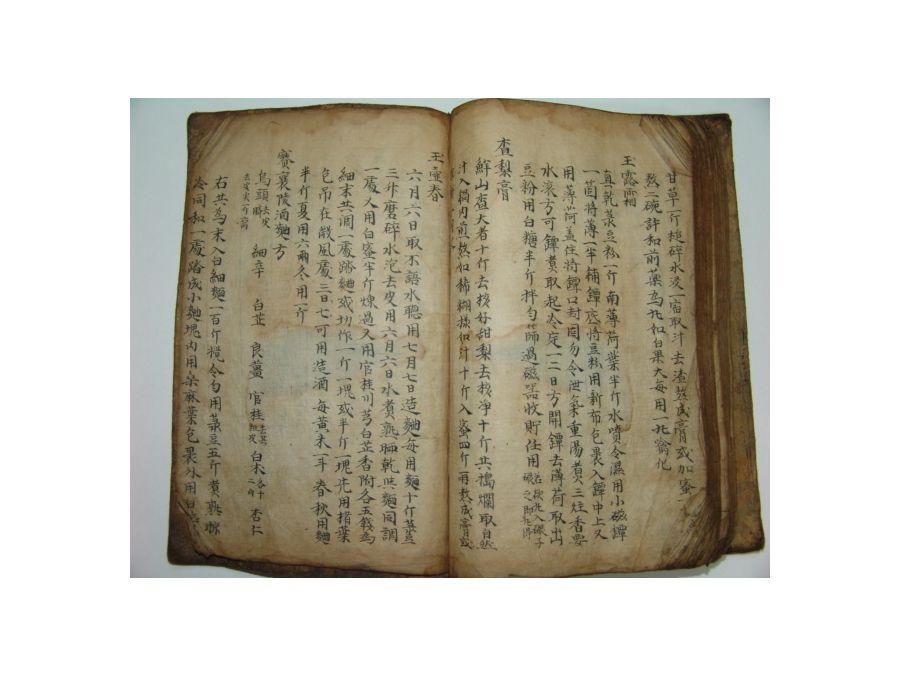 甘草一斤槌碎水浸一宿取汁去渣熬成膏或加蜜
熬二碗許和前藥為丸如白果大每用一丸噙化
玉露霜
真乾菉豆粉一斤南薄荷葉半斤水噴令濕用小磁罈
一箇將薄一半鋪罈底將豆粉用新布包裹入罈中上又
用薄荷盖住將罈口封固勿令泄氣重湯煮三炷香要
水滚方可罈煮取起冷定一二日方開罈去薄荷取出
豆粉用白糖半斤拌匀篩過磁器收貯任用
查梨膏
鮮山查大者十斤去核好甜梨去核淨十斤共搗爛取自然
汁入鍋內煎熬如稀糊樣如汁十斤入蜜四斤再熬成膏或
玉壺春
六月六日取不語水聽用七月七日造麯每用麵十斤菉豆
三升磨碎水泡去皮用六月六日水煮熟晒乾共麵同調
一處入用白蜜半斤煉過入用官桂川芎白芷香附各五錢為
細末共調一處踏麯或切作一斤一塊或半斤一塊先用楮葉
包吊在厰風處三日七可用造酒每黃米一斗春秋用麯
半斤夏用六兩冬用一斤
襄陵酒麯方
烏頭 細辛 白芷 良薑 官桂 白朮 杏仁
右共為末入白細麵一百斤攪令匀用菉豆五斤煮熟
冷同和一處踏成小麯塊內用朵麻葉包裹外用